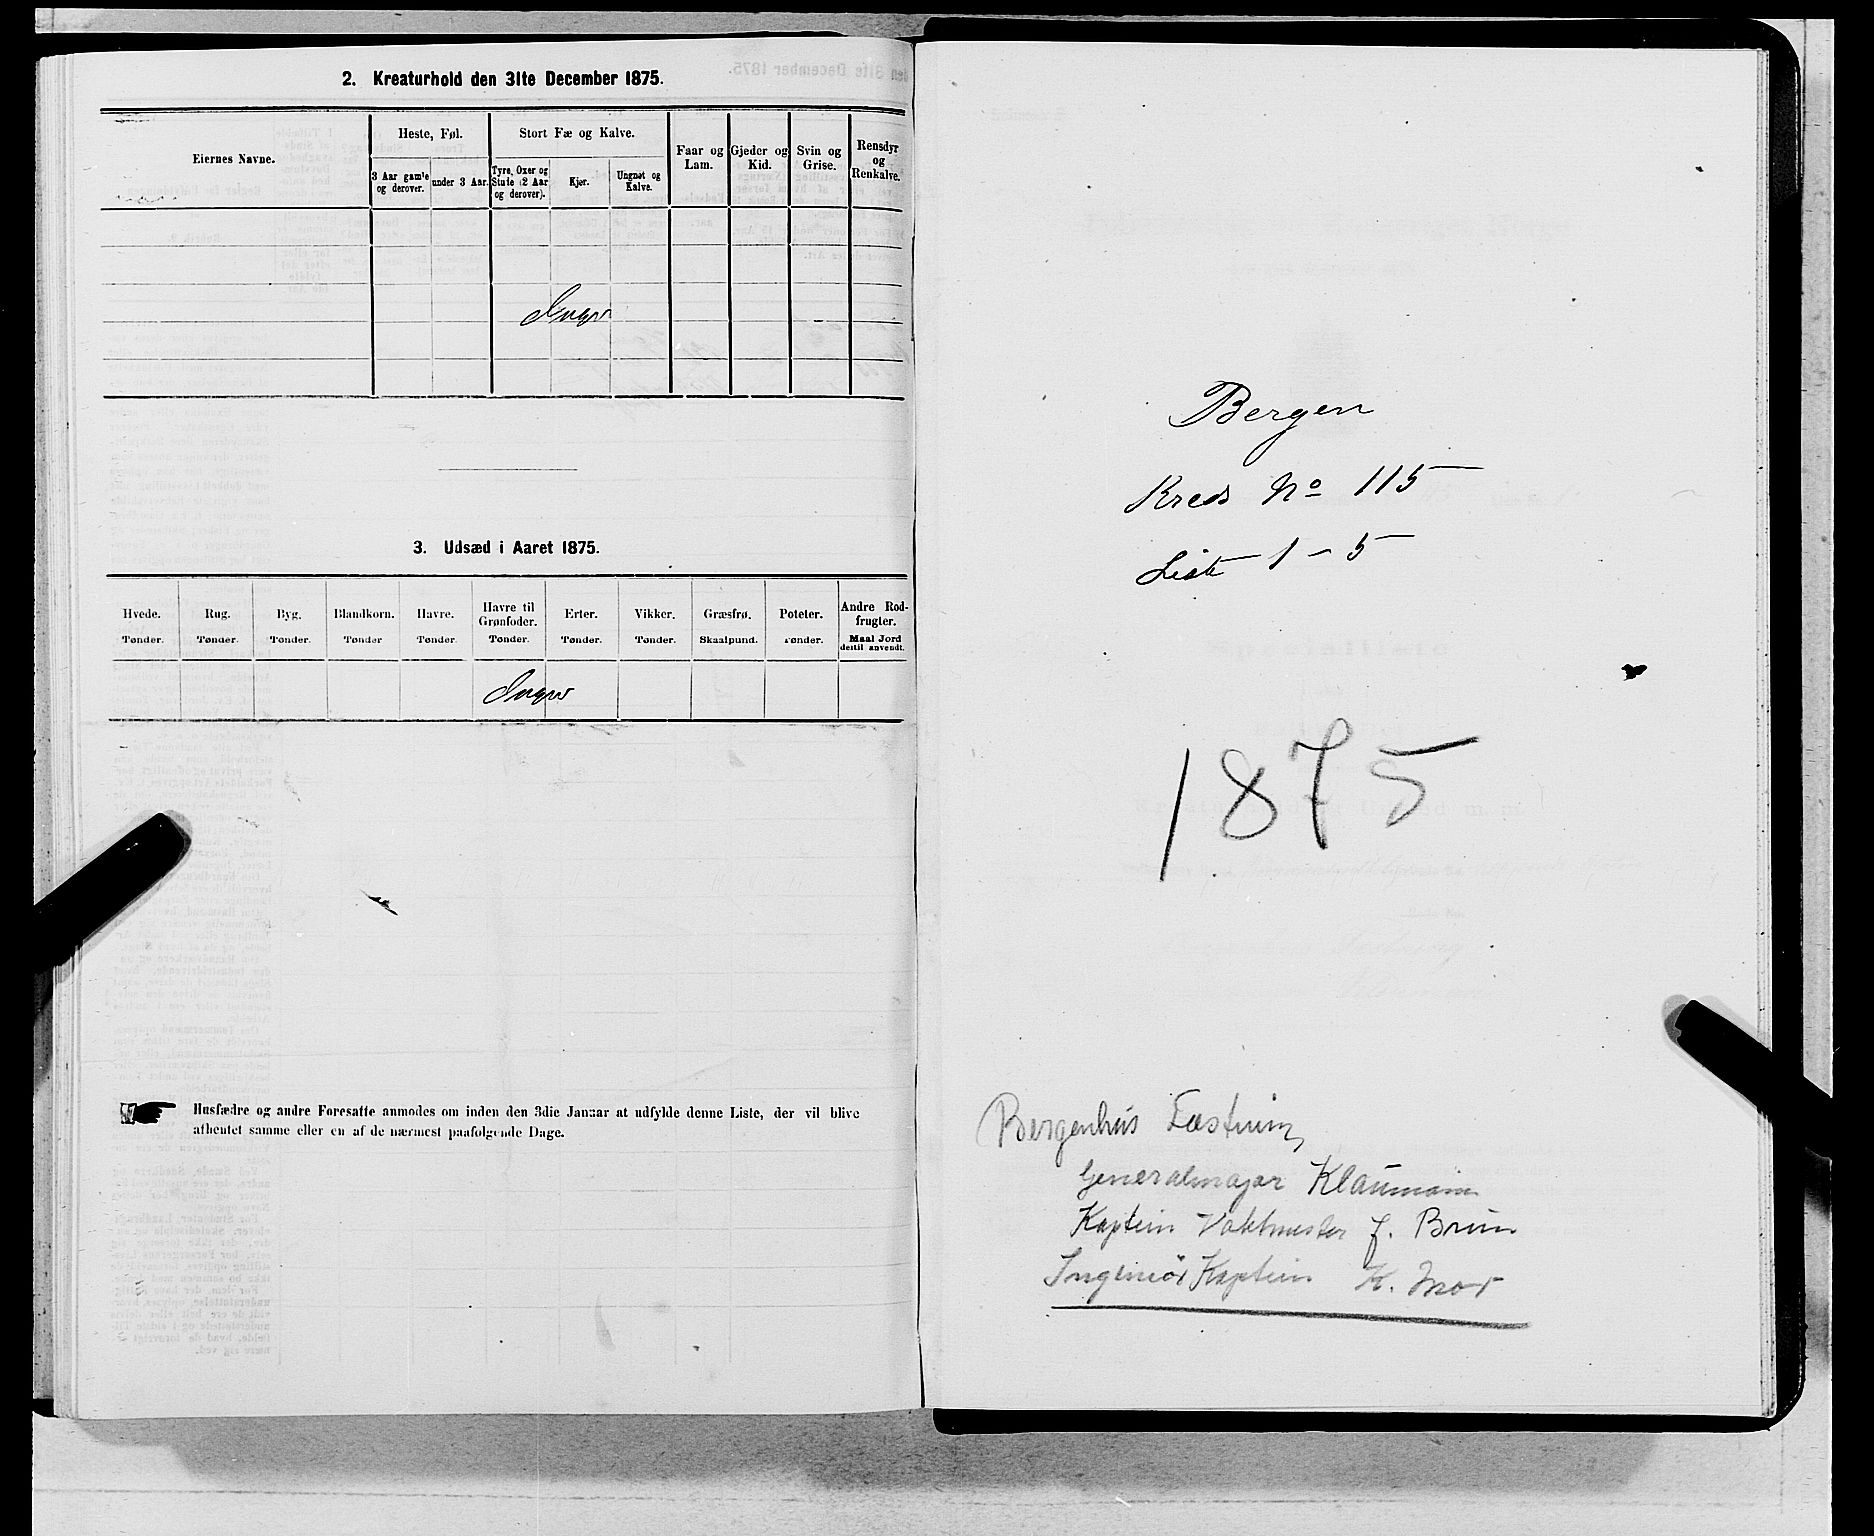 2. Kreaturhold den 31te December 1875.
Eiernes Navne.
Heste, Føl.
Stort Fæ og Kalve.
Faar og Lam.
Gjeder og Kid.
Svin og Grise.
Rensdyr og Renkalve.
3 Aar gamle og derover.
under 3 Aar.
Tyre, Oxer og Stude (2 Aar og derover).
Kjør.
Ungnøt og Kalve.
Ingen
3. Udsæd i Aaret 1875.
Hvede. Rug. Byg. Blandkorn. Havre. Havre til Grønfoder. Erter. Vikker. Græsfrø. Poteter. Andre Rodfrugter.
Tønder. Tønder. Tønder. Tønder Tønder. Tønder. Tønder. Tønder. Skaalpund. Tønder. Maal Jord dertil anvendt.
Ingen
Husfædre og andre Foresatte anmodes om inden den 3die Januar at udfylde denne Liste, der vil blive
afhentet samme eller en af de nærmest paafølgende Dage.
Bergen
Kreds No 115
Liste 1 - 5
1875
Bergenhus Fæstning
Generalmajor Klaumann
Kaptein Vaktmester J. Brun
Ingeniør Kaptein K.